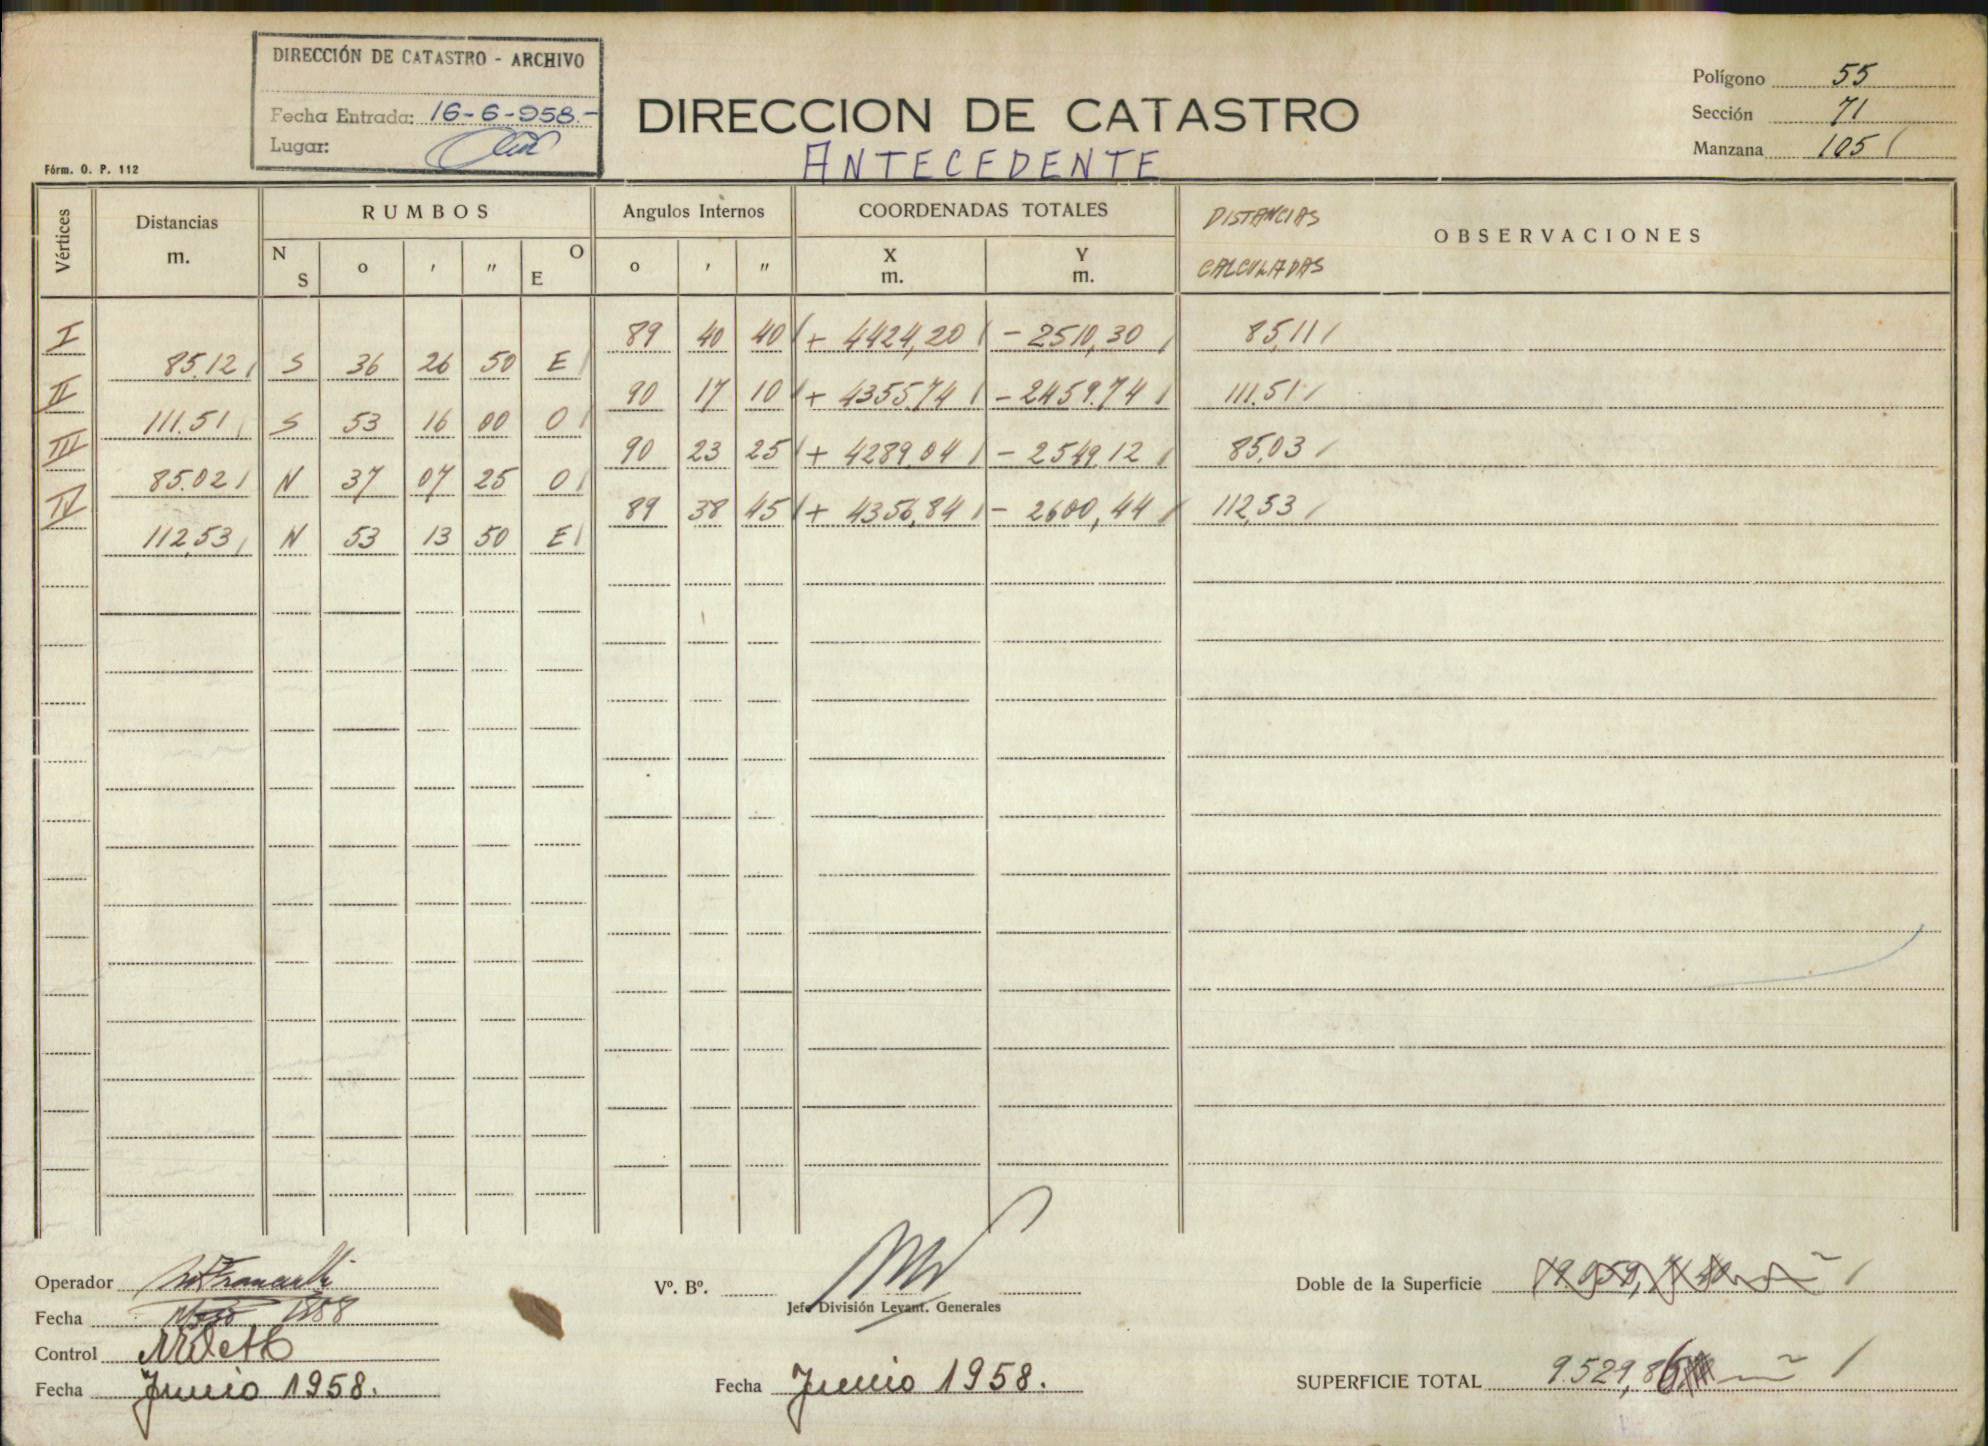 DIRECCIÓN DE CATASTRO - ARCHIVO
Fecha Entrada: 16-6-958.-
Lugar:
Fórm. O. P. 112
DIRECCION DE CATASTRO
ANTECEDENTE
Polígono 55
Sección 71
Manzana 105
Vértices
Distancias
m.
RUMBOS
N S o ' " O E
Angulos Internos
o ' "
COORDENADAS TOTALES
X
m.
Y
m.
DISTANCIAS
CALCULADAS
OBSERVACIONES
I 89 40 40 + 4424,20 - 2510,30 85,11
85.12 S 36 26 50 E
II 90 17 10 + 4355.74 - 2459.74 111.51
111.51 S 53 16 00 O
III 90 23 25 + 4289.04 - 2549.12 85,03
85.02 N 37 07 25 O
IV 89 38 45 + 4356,84 - 2600,44 112,53
112,53 N 53 13 50 E
Operador
Fecha 1958
Control
Fecha Junio 1958.
Vº. Bº.
Jefe División Levant. Generales
Fecha Junio 1958.
Doble de la Superficie
SUPERFICIE TOTAL 9.529,86